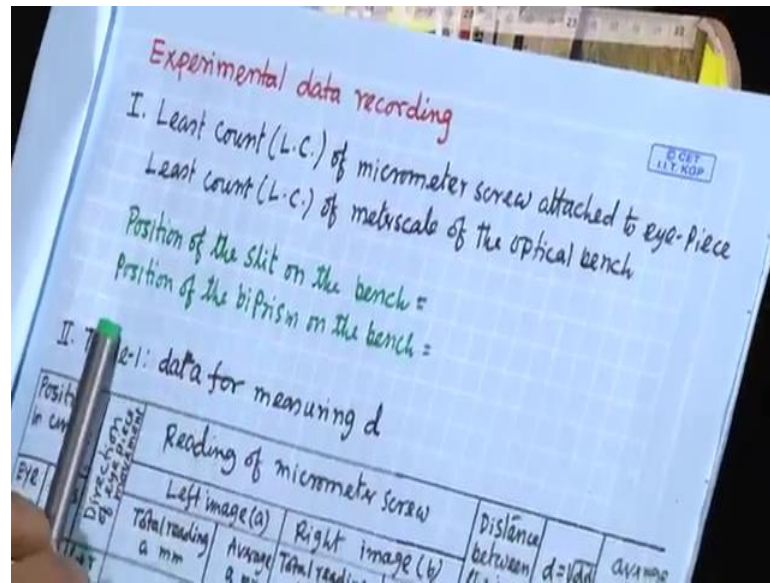 Experimental data recording
© CET
I.I.T. KGP
I. Least count (L.C.) of micrometer screw attached to eye-Piece
Least count (L.C.) of metrscale of the optical bench
Position of the slit on the bench =
Position of the biprism on the bench =
II. data for measuring d
in
Direction of eye piece movement
Reading of micrometer screw
Eye
Left image (a)
Right image (b)
Distance between
d=√
average
Total reading a mm
Average
Total reading